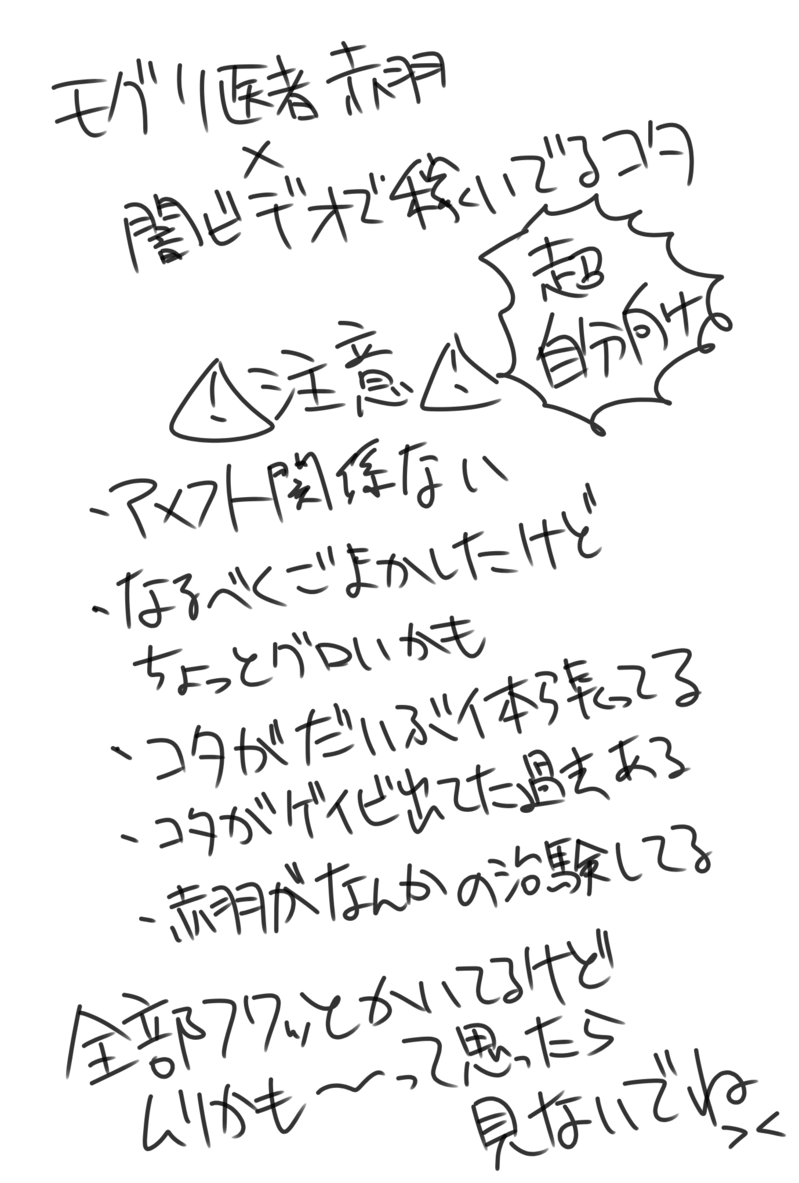 モグリ医者赤羽
×
闇ビデオで稼いでるコタ
超
自分向け
⚠注意⚠
・アメフト関係ない
・なるべくごまかしたけど
ちょっとグロいかも
・コタがだいぶ体張ってる
・コタがゲイビ出てた過去ある
・赤羽がなんかの治験してる
全部フワッとかいてるけど
ムリかも〜って思ったら
見ないでねっ